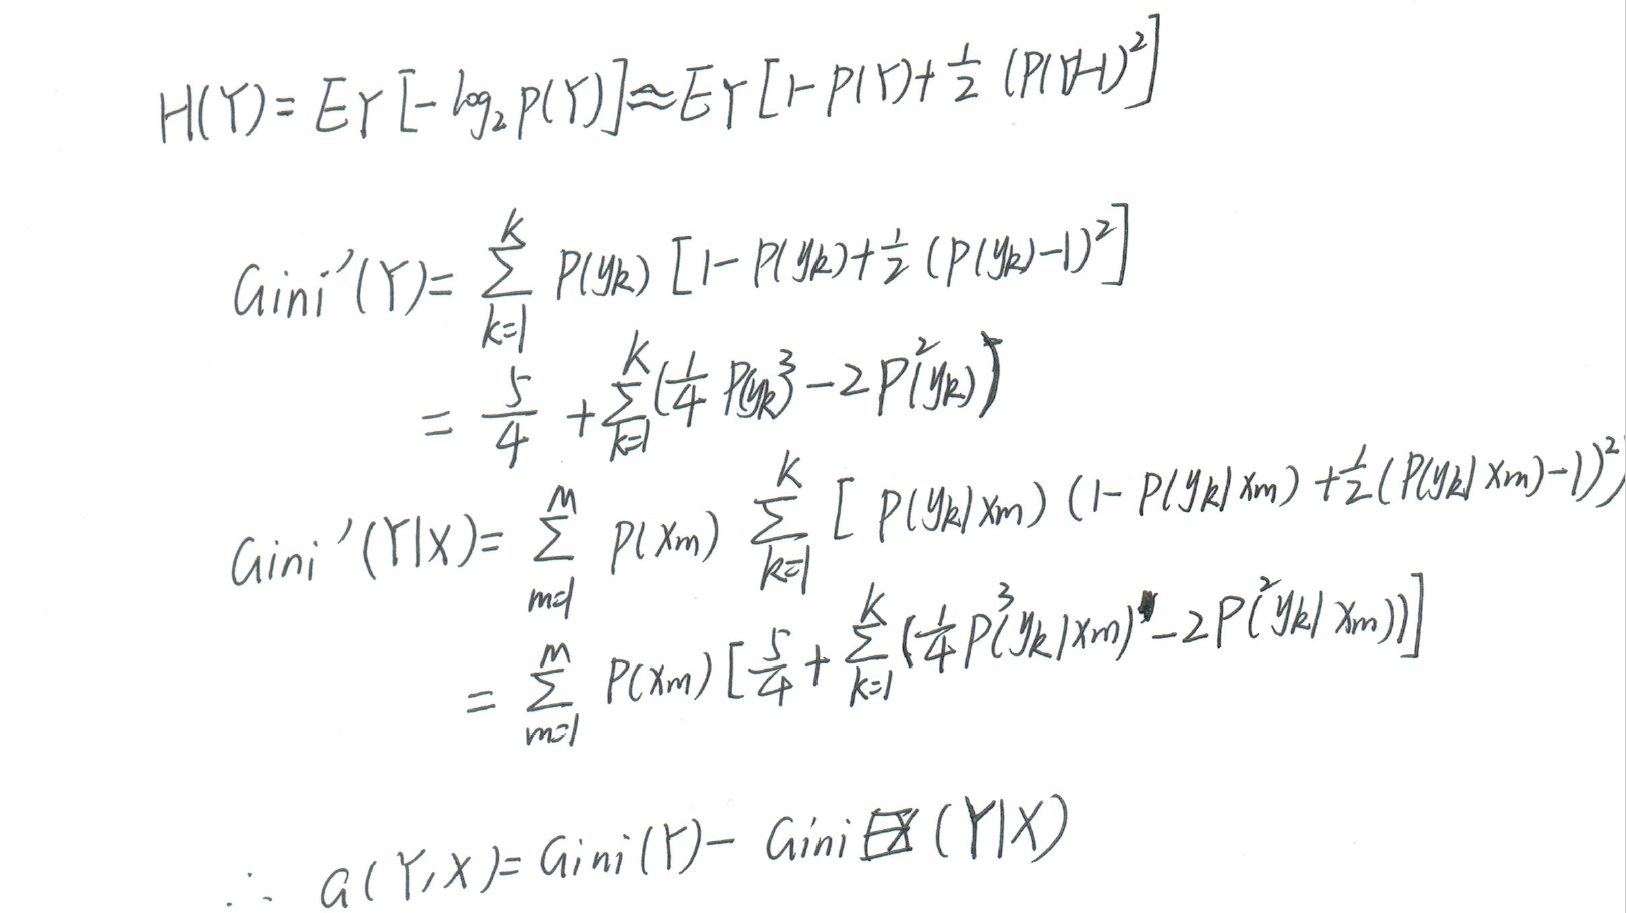 H(Y)= E_Y [-log_2 p(Y)] ≈ E_Y [1-P(Y)+ 1/2 (P(Y)-1)^2]
Gini'(Y)= ∑_{k=1}^{K} P(y_k) [1-P(y_k)+ 1/2 (P(y_k)-1)^2]
= 5/4 + ∑_{k=1}^{K} (1/4 P(y_k)^3 - 2P^2(y_k))
Gini'(Y|X)= ∑_{m=1}^{M} P(x_m) ∑_{k=1}^{K} [P(y_k|x_m) (1-P(y_k|x_m) + 1/2 (P(y_k|x_m)-1))^2
= ∑_{m=1}^{M} P(x_m) [5/4 + ∑_{k=1}^{K} (1/4 P^3(y_k|x_m) - 2P^2(y_k|x_m))]
∴ G(Y,X)= Gini(Y)- Gini (Y|X)